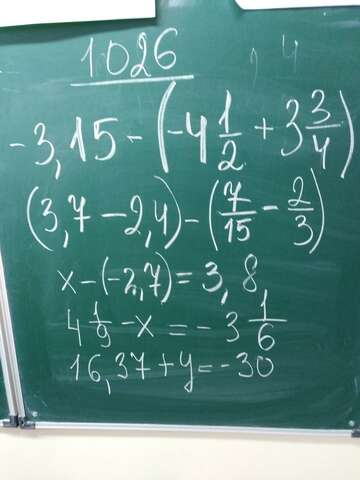 1026
4
-3,15-(-4 1/2 + 3 3/4)
(3,7-2,4)-(7/15 - 2/3)
x-(-2,7)=3,8
4 1/9 - x = - 3 1/6
16,37+y=-30